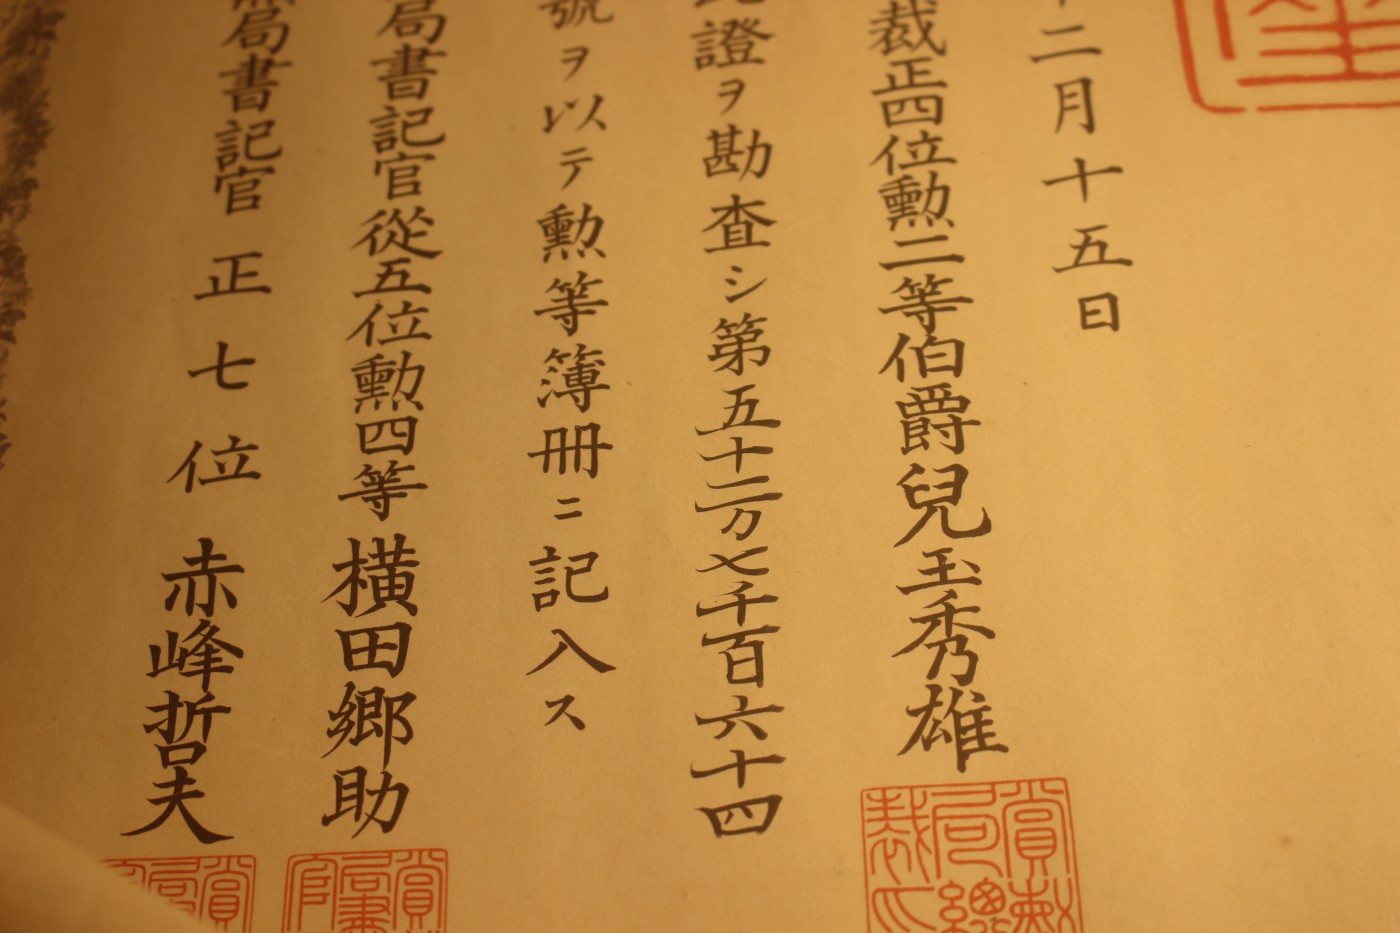 二月十五日
裁正四位勲二等伯爵兒玉秀雄
證ヲ勘査シ第五十二万七千百六十四
號ヲ以テ勲等簿冊ニ記入ス
局書記官從五位勲四等横田郷助
局書記官正七位赤峰哲夫
賞勲局總裁
賞局書官
賞局官